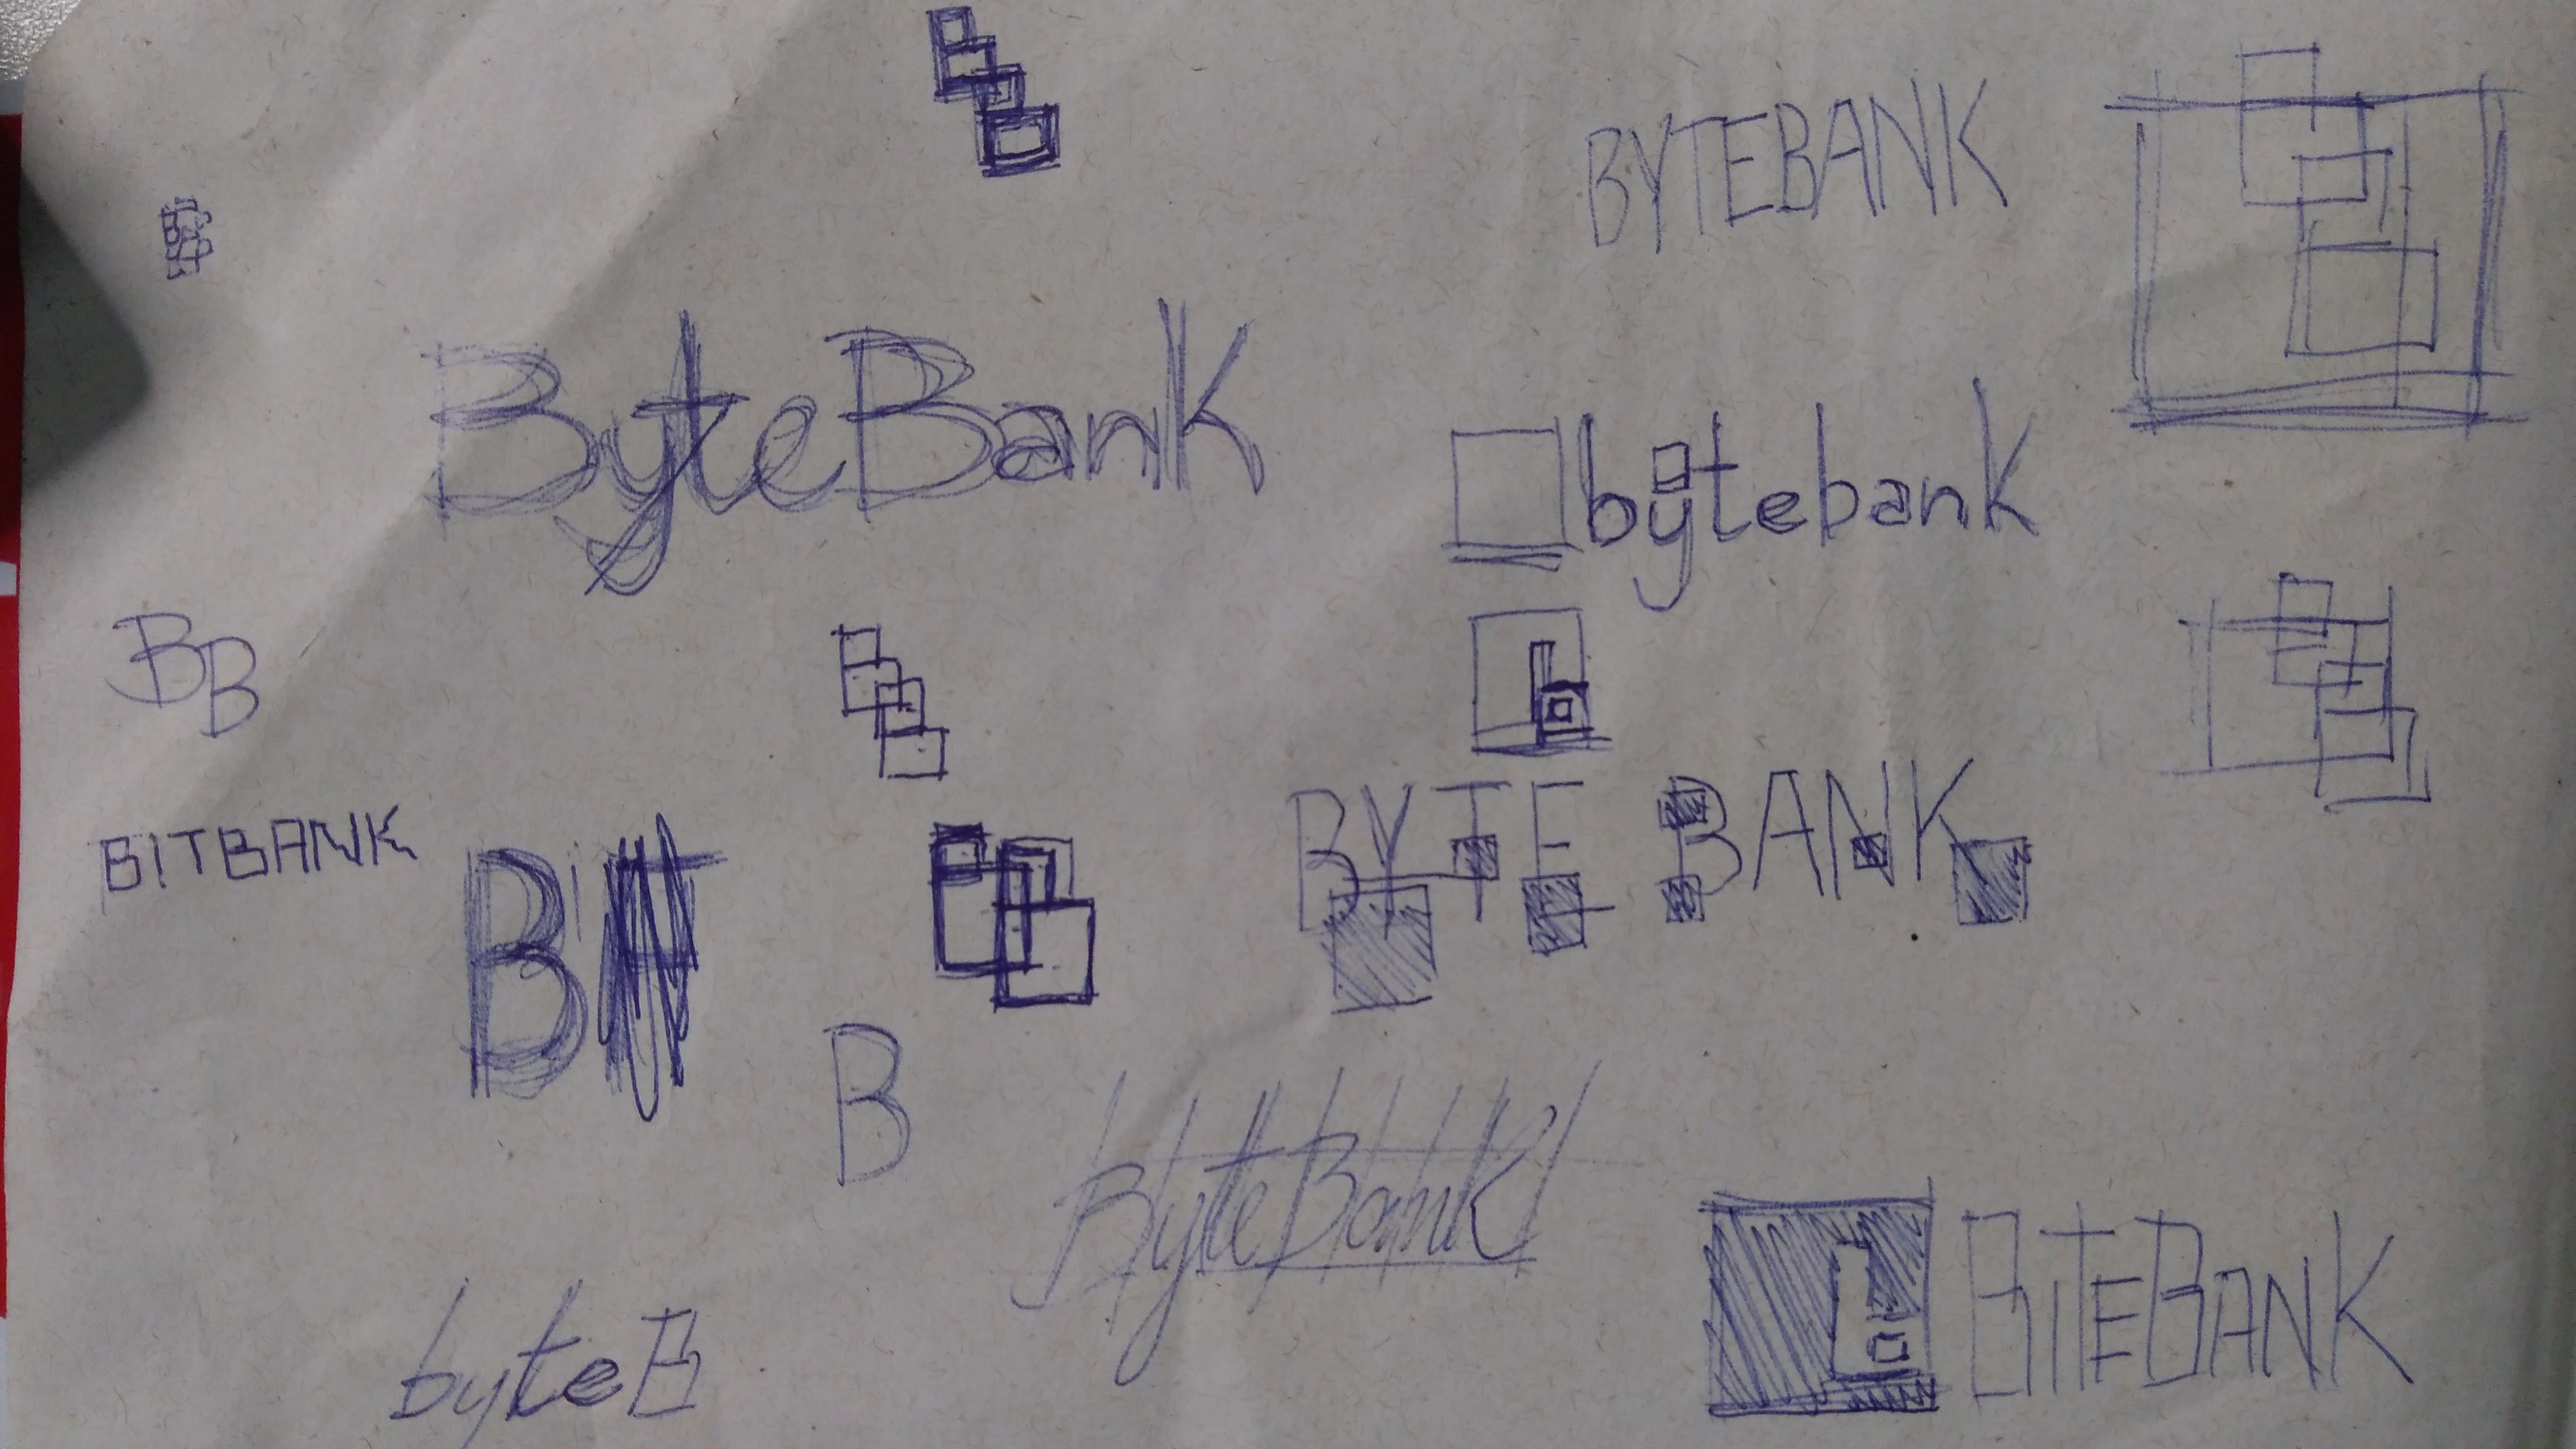 BYTEBANK
ByteBank
bytebank
BB
BITBANK
BYTE BANK
B
ByteBank
BITEBANK
byteB